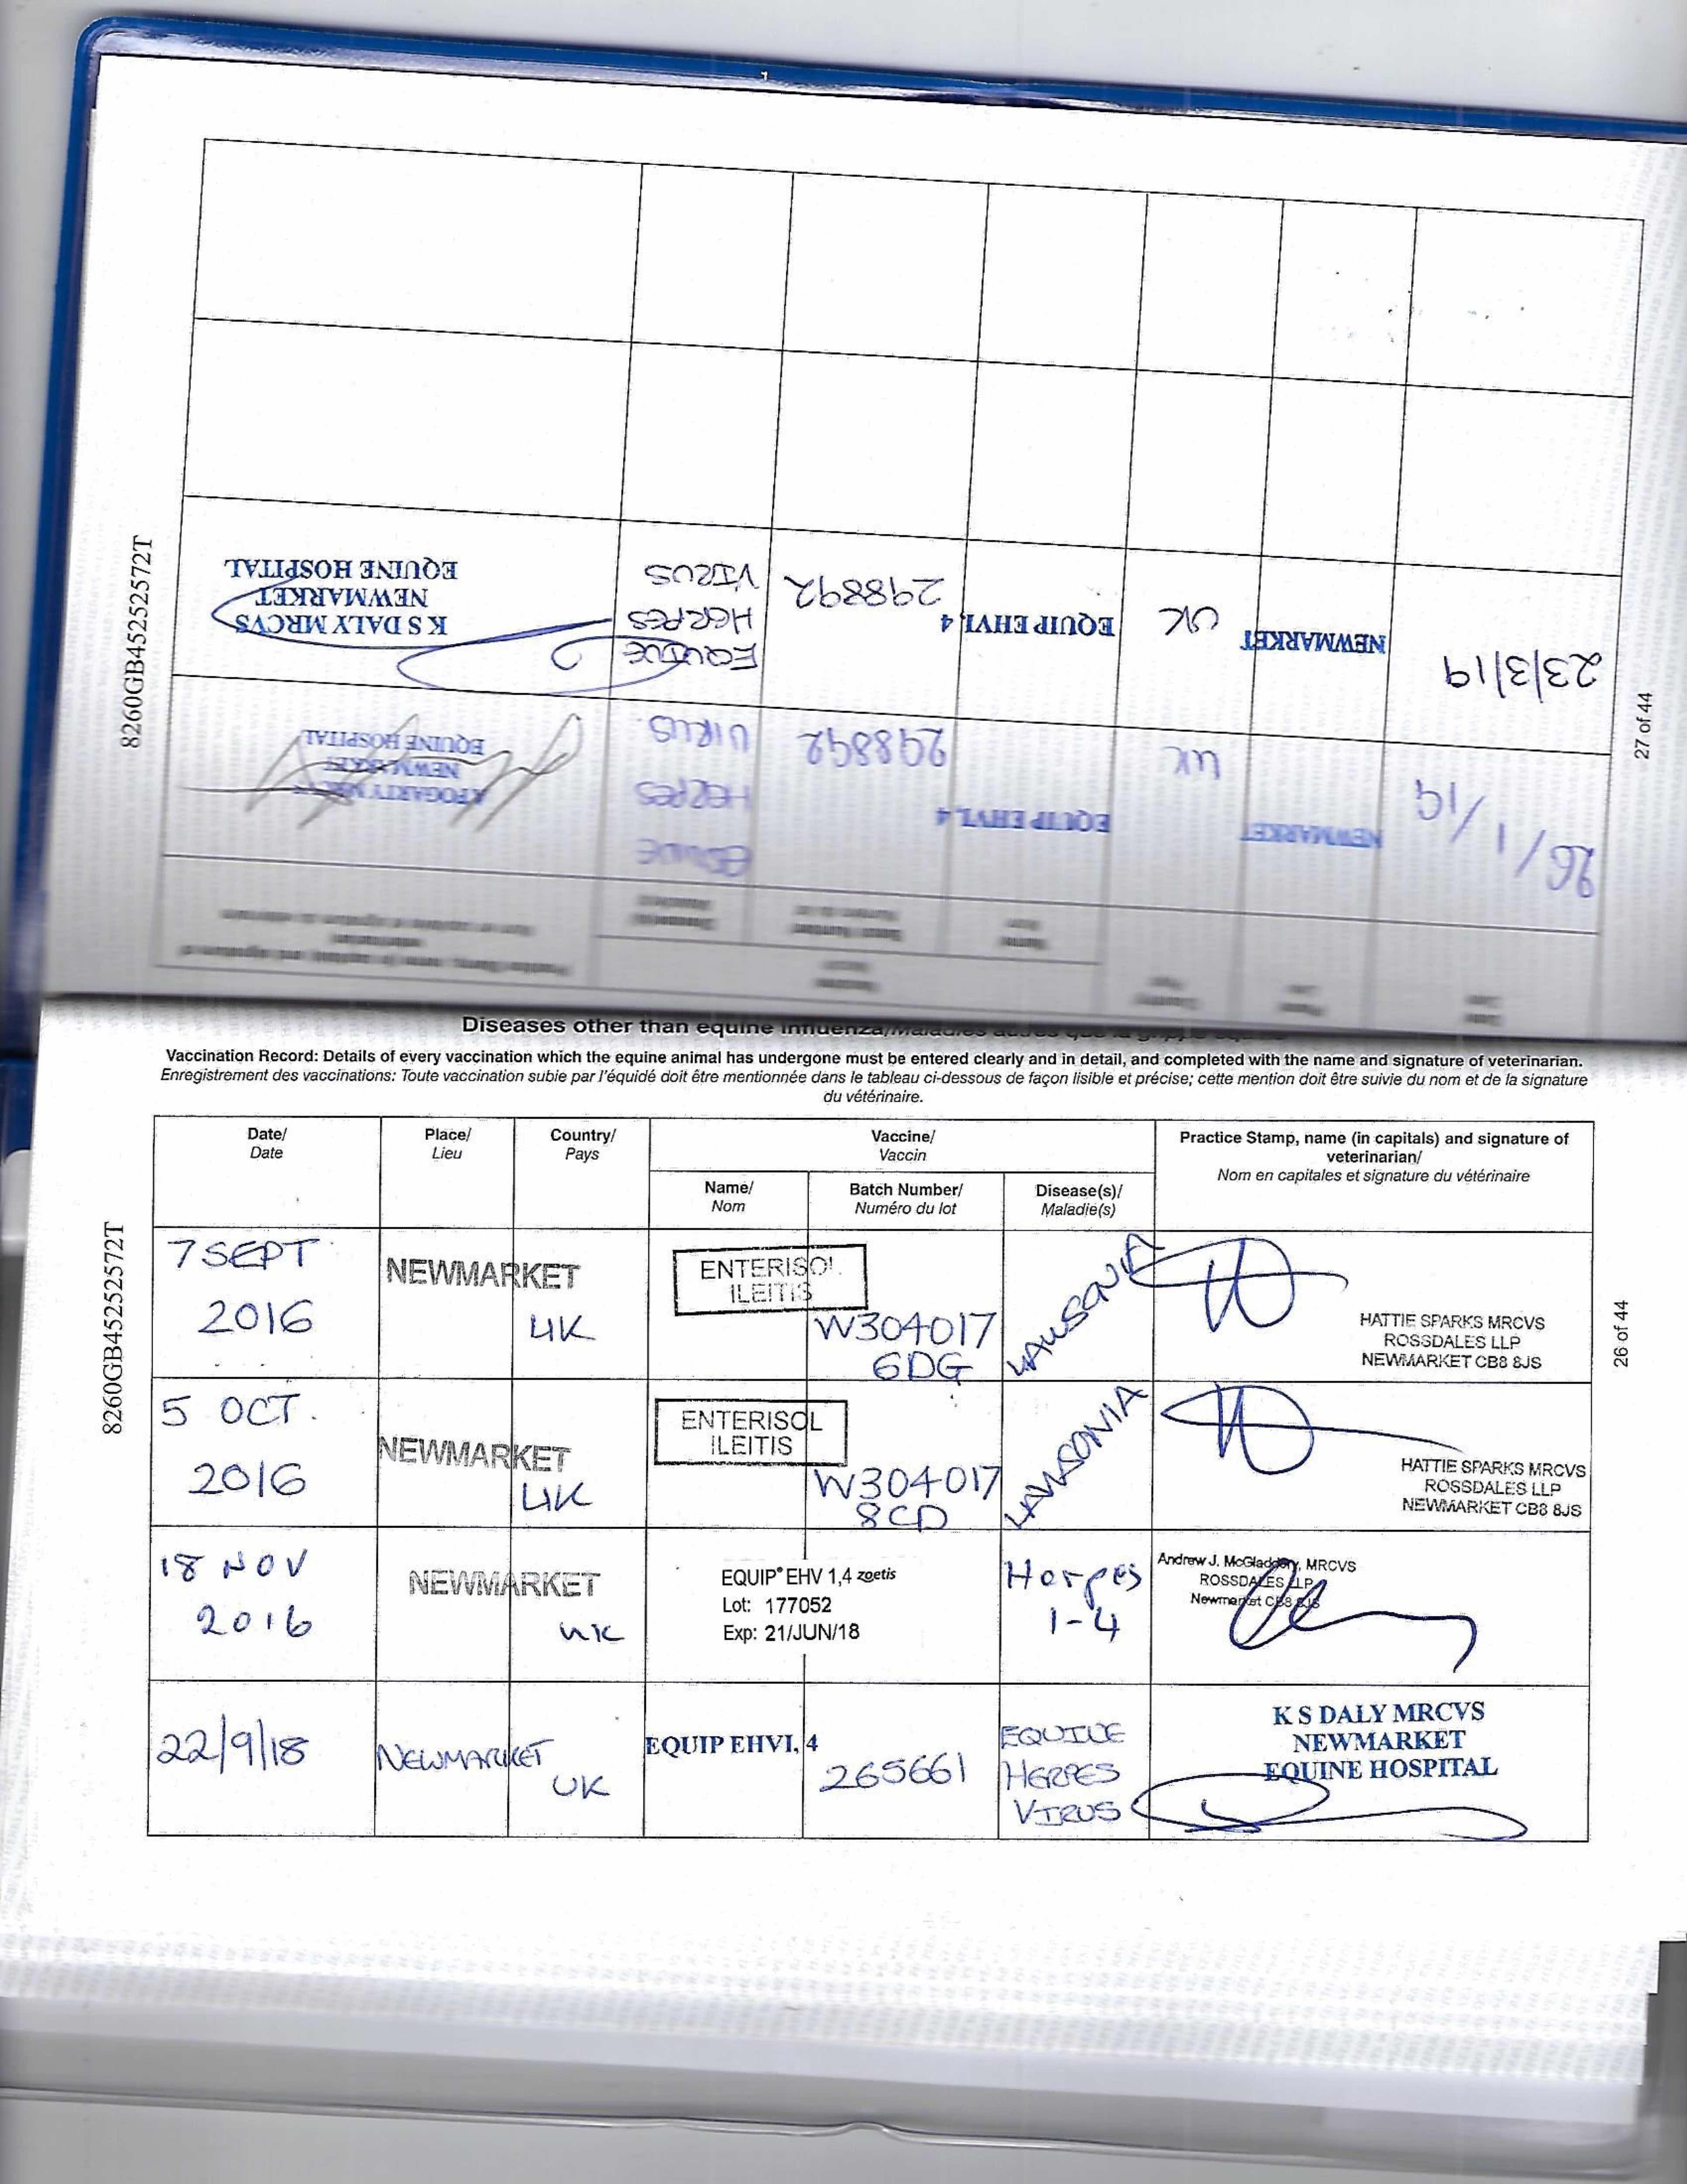 8260GB452525272T
27 of 44
26/1/19
NEWMARKET
UK
EQUIP EHVI, 4
298892
EQUINE
HERPES
VIRUS
A FOGARTY MRCVS
NEWMARKET
EQUINE HOSPITAL
23/3/19
NEWMARKET
UK
EQUIP EHVI, 4
298892
EQUINE
HERPES
VIRUS
K S DALY MRCVS
NEWMARKET
EQUINE HOSPITAL
Diseases other than equine influenza/Maladies autres que la grippe equine
Vaccination Record: Details of every vaccination which the equine animal has undergone must be entered clearly and in detail, and completed with the name and signature of veterinarian.
Enregistrement des vaccinations: Toute vaccination subie par l'équidé doit être mentionnée dans le tableau ci-dessous de façon lisible et précise; cette mention doit être suivie du nom et de la signature
du vétérinaire.
Date/
Date
Place/
Lieu
Country/
Pays
Vaccine/
Vaccin
Name/
Nom
Batch Number/
Numéro du lot
Disease(s)/
Maladie(s)
Practice Stamp, name (in capitals) and signature of
veterinarian/
Nom en capitales et signature du vétérinaire
8260GB452525272T
26 of 44
7 SEPT
2016
NEWMARKET
UK
ENTERISOL
ILEITIS
W304017
6DG
LAWSONIA
HATTIE SPARKS MRCVS
ROSSDALES LLP
NEWMARKET CB8 8JS
5 OCT.
2016
NEWMARKET
UK
ENTERISOL
ILEITIS
W304017
8CD
LAWSONIA
HATTIE SPARKS MRCVS
ROSSDALES LLP
NEWMARKET CB8 8JS
18 NOV
2016
NEWMARKET
UK
EQUIP® EHV 1,4 zoetis
Lot: 177052
Exp: 21/JUN/18
Herpes
1-4
Andrew J. McGladdery, MRCVS
ROSSDALES LLP
Newmarket CB8 8JS
22/9/18
NEWMARKET
UK
EQUIP EHVI, 4
265661
EQUINE
HERPES
VIRUS
K S DALY MRCVS
NEWMARKET
EQUINE HOSPITAL